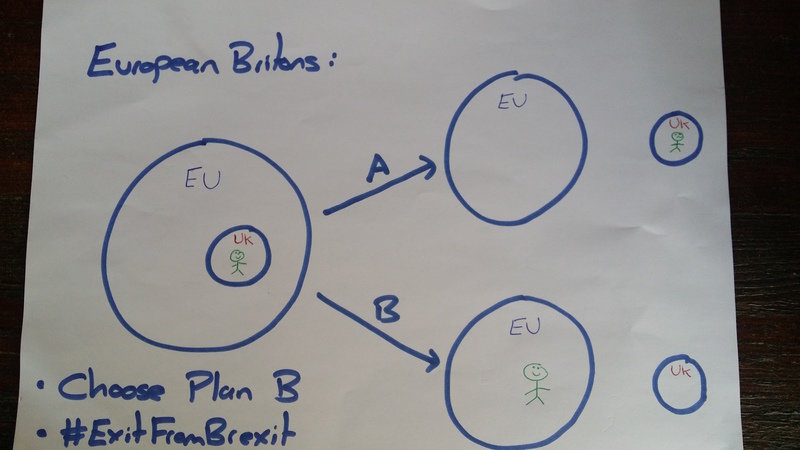 European Britons:
EU
UK
A
EU
UK
B
EU
UK
• Choose Plan B
• #ExitFromBrexit